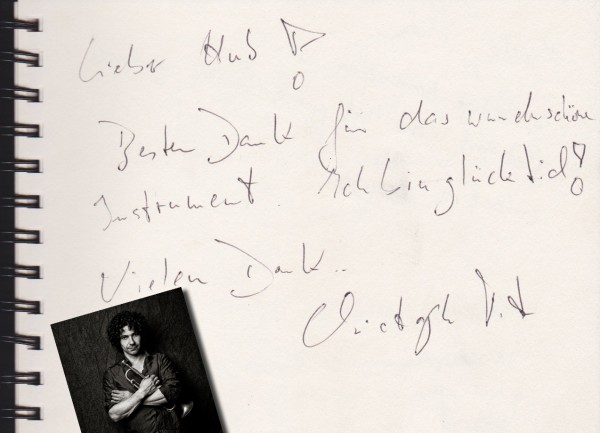 Lieber Hub!
Besten Dank für das wunderschöne
Instrument. Ich bin glücklich!
Vielen Dank..
Christoph